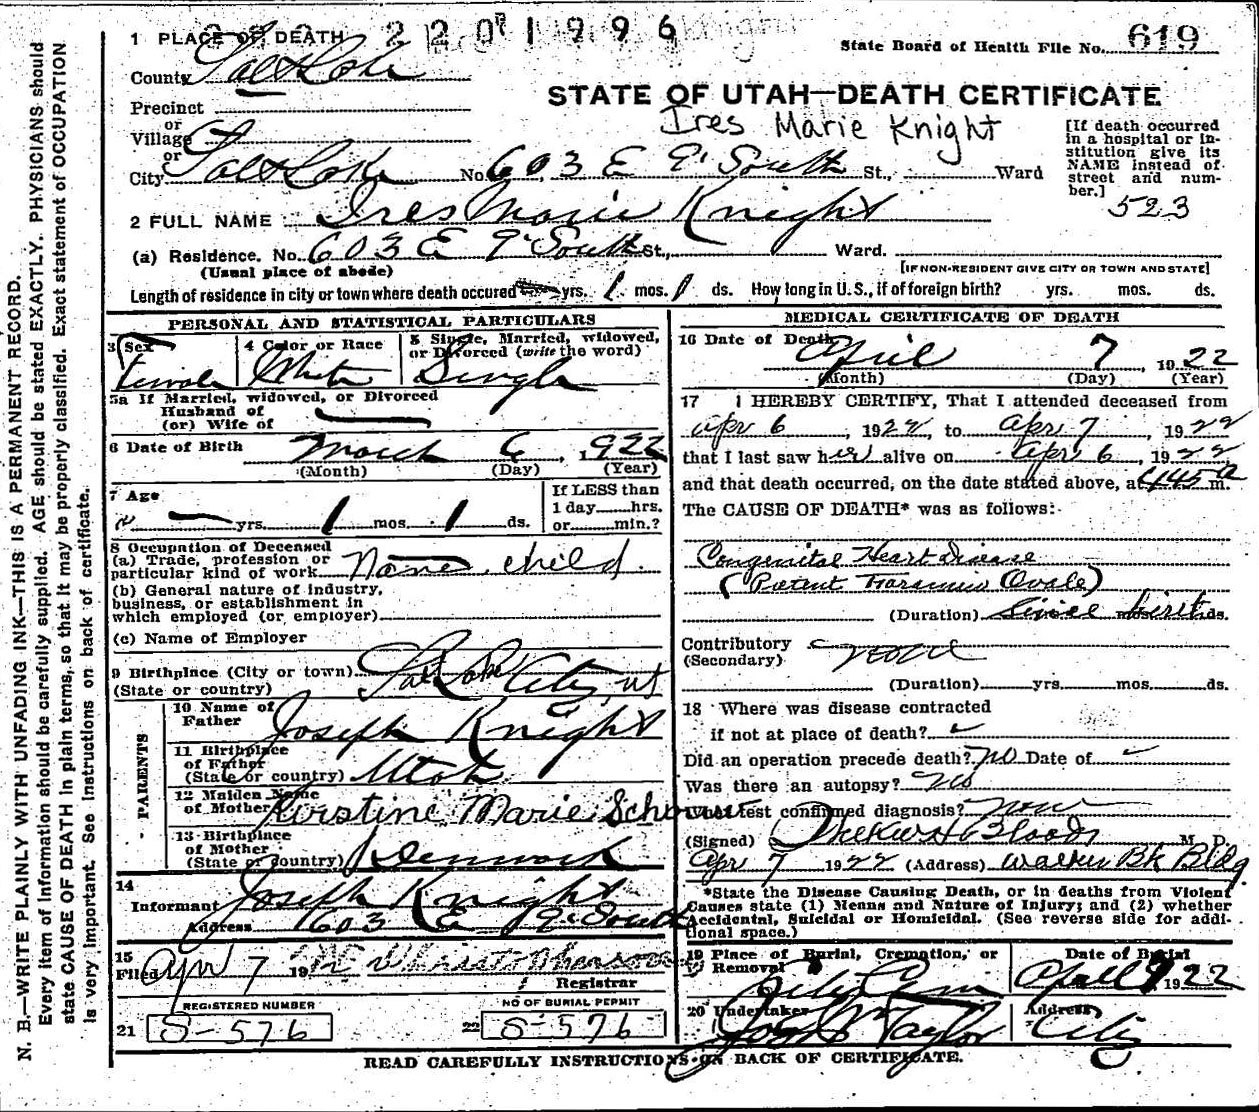 1 PLACE OF DEATH 2201996
State Board of Health File No. 619
County Salt Lake
STATE OF UTAH—DEATH CERTIFICATE
Precinct
or
Village
or
Ires Marie Knight
[If death occurred in a hospital or institution give its NAME instead of street and number.]
City Salt Lake No. 603 E 9" South St., Ward
523
2 FULL NAME Ires Marie Knight
(a) Residence. No. 603 E 9" South St., Ward.
(Usual place of abode)
[IF NON-RESIDENT GIVE CITY OR TOWN AND STATE]
Length of residence in city or town where death occured yrs. 1 mos. 1 ds. How long in U.S., if of foreign birth? yrs. mos. ds.
PERSONAL AND STATISTICAL PARTICULARS
3 Sex Female
4 Color or Race White
5 Single, Married, widowed, or Divorced (write the word) Single
5a If Married, widowed, or Divorced
Husband of
(or) Wife of
6 Date of Birth March 6, 1922
(Month) (Day) (Year)
7 Age — yrs. 1 mos. 1 ds.
If LESS than
1 day hrs.
or min.?
8 Occupation of Deceased
(a) Trade, profession or
particular kind of work None child.
(b) General nature of industry,
business, or establishment in
which employed (or employer)
(c) Name of Employer
9 Birthplace (City or town) Salt Lake City, Ut
(State or country)
PARENTS
10 Name of Father Joseph Knight
11 Birthplace of Father
(State or country) Utah
12 Maiden Name of Mother Kirstine Marie
13 Birthplace of Mother
(State or country) Denmark
14
Informant Joseph Knight
Address 603 E 9" South
15
Filed Apr 7 19
Registrar
REGISTERED NUMBER
21 S-576
NO OF BURIAL PERMIT
22 S-576
MEDICAL CERTIFICATE OF DEATH
16 Date of Death April 7, 1922
(Month) (Day) (Year)
17 I HEREBY CERTIFY, That I attended deceased from
Apr 6, 1922, to Apr 7, 1922
that I last saw her alive on Apr 6, 1922
and that death occurred, on the date stated above, at 445 a m.
The CAUSE OF DEATH* was as follows:
Congenital Heart Disease
(Patent Foramen Ovale)
(Duration) since birth ds.
Contributory none
(Secondary)
(Duration) yrs. mos. ds.
18 Where was disease contracted
if not at place of death?
Did an operation precede death? No Date of
Was there an autopsy? No
What test confirmed diagnosis? none
(Signed) M. D.
Apr 7 1922 (Address) Walker Bk Bldg.
*State the Disease Causing Death, or in deaths from Violent
Causes state (1) Menns and Nature of Injury; and (2) whether
Accidental, Suicidal or Homicidal. (See reverse side for addi-
tional space.)
19 Place of Burial, Cremation, or Removal City Cem
Date of Burial April 9, 1922
20 Undertaker Jos Wm Taylor
Address City
READ CAREFULLY INSTRUCTIONS ON BACK OF CERTIFICATE.
N. B.—WRITE PLAINLY WITH UNFADING INK—THIS IS A PERMANENT RECORD.
Every item of information should be carefully supplied. AGE should be stated EXACTLY. PHYSICIANS should
state CAUSE OF DEATH in plain terms, so that it may be properly classified. Exact statement of OCCUPATION
is very important. See instructions on back of certificate.